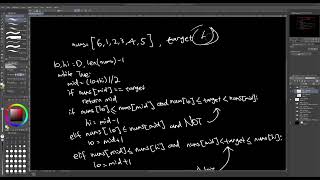 nums [6,1,2,3,4,5], target
lo, hi = 0, len(nums)-1
while True:
mid = (lo+hi)//2
if nums[mid] == target
return mid
if nums[lo] ≤ nums[mid] and nums[lo] ≤ target < nums[mid]:
hi = mid-1
elif nums[lo] ≤ nums[mid] and NOT
lo = mid+1
elif nums[mid] ≤ nums[hi] and nums[mid] < target ≤ nums[hi]:
lo = mid+1